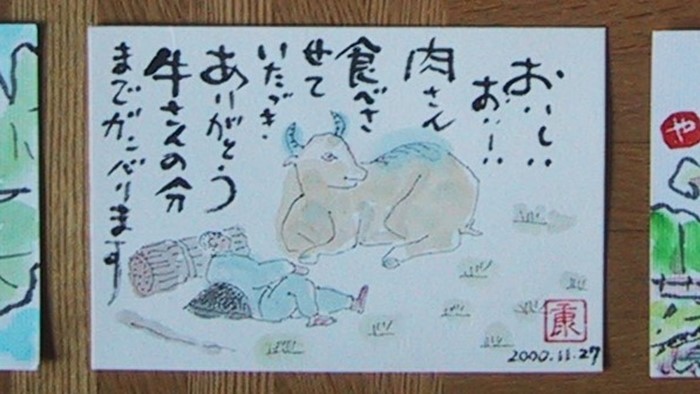 おいしい
おいしい
肉さん
食べさ
せて
いただき
ありがとう
牛さんの分
までガンバリます
康
2000.11.27
や